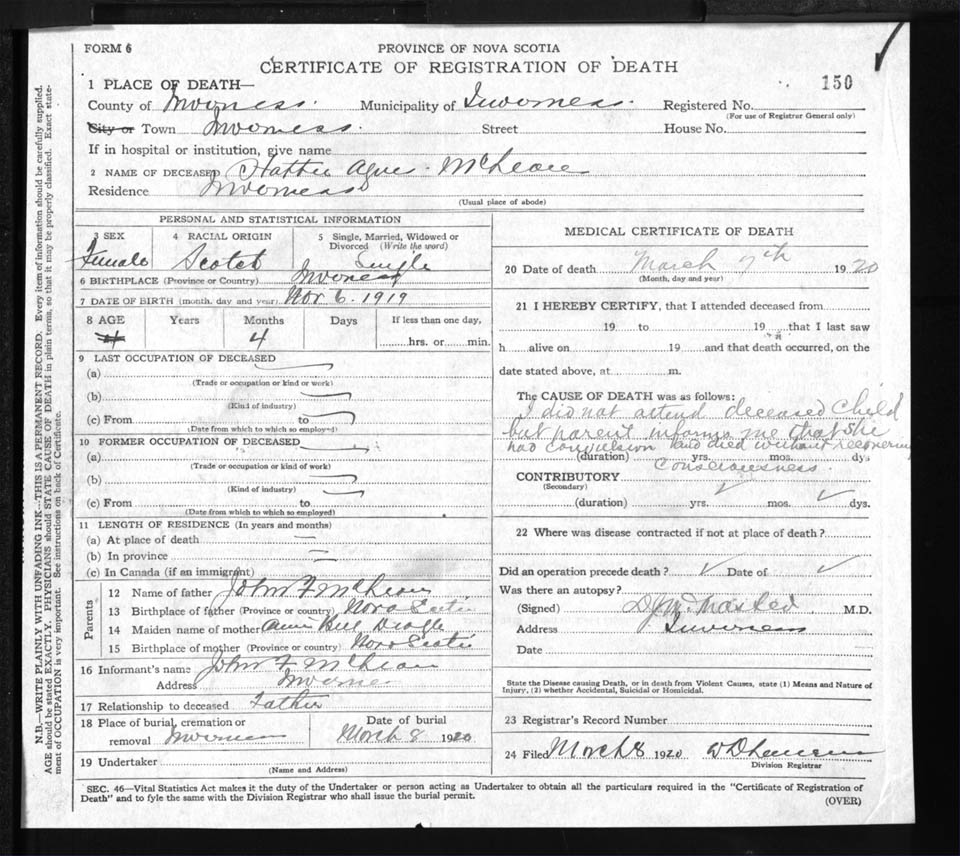 FORM 6
PROVINCE OF NOVA SCOTIA
CERTIFICATE OF REGISTRATION OF DEATH
150
1 PLACE OF DEATH—
County of Inverness. Municipality of Inverness. Registered No.
(For use of Registrar General only)
City or Town Inverness. Street House No.
If in hospital or institution, give name
2 NAME OF DECEASED Hattie Agnes McLean
Residence Inverness
(Usual place of abode)
PERSONAL AND STATISTICAL INFORMATION
3 SEX 4 RACIAL ORIGIN 5 Single, Married, Widowed or Divorced (Write the word)
Female Scotch Single
6 BIRTHPLACE (Province or Country) Inverness
7 DATE OF BIRTH (month, day and year) Nov. 6. 1919
8 AGE Years Months Days If less than one day,
4 4 hrs. or min.
9 LAST OCCUPATION OF DECEASED
(a)
(Trade or occupation or kind or work)
(b)
(Kind of industry)
(c) From to
(Date from which to which so employed)
10 FORMER OCCUPATION OF DECEASED
(a)
(Trade or occupation or kind of work)
(b)
(Kind of industry)
(c) From to
(Date from which to which so employed)
11 LENGTH OF RESIDENCE (In years and months)
(a) At place of death —
(b) In province —
(c) In Canada (if an immigrant)
Parents
12 Name of father John F McLean
13 Birthplace of father (Province or country) Nova Scotia
14 Maiden name of mother Bell
15 Birthplace of mother (Province or country) Nova Scotia
16 Informant's name John F McLean
Address Inverness
17 Relationship to deceased Father
18 Place of burial, cremation or removal Inverness
Date of burial March 8 1920
19 Undertaker
(Name and Address)
MEDICAL CERTIFICATE OF DEATH
20 Date of death March 7th 1920
(Month, day and year)
21 I HEREBY CERTIFY, that I attended deceased from
19 to 19 that I last saw
h alive on 19 and that death occurred, on the
date stated above, at m.
The CAUSE OF DEATH was as follows:
I did not attend deceased child
but parent informs me that she
had convulsion and died without recovering
(duration) yrs. mos. dys
consciousness.
CONTRIBUTORY
(Secondary)
(duration) yrs. mos. dys.
22 Where was disease contracted if not at place of death?
Did an operation precede death? Date of
Was there an autopsy?
(Signed) M.D.
Address Inverness
Date
State the Disease causing Death, or in death from Violent Causes, state (1) Means and Nature of
Injury, (2) whether Accidental, Suicidal or Homicidal.
23 Registrar's Record Number
24 Filed March 8 1920
Division Registrar
SEC. 46—Vital Statistics Act makes it the duty of the Undertaker or person acting as Undertaker to obtain all the particulars required in the "Certificate of Registration of
Death" and to fyle the same with the Division Registrar who shall issue the burial permit.
(OVER)
N.B.—WRITE PLAINLY WITH UNFADING INK—THIS IS A PERMANENT RECORD. Every item of information should be carefully supplied.
AGE should be stated EXACTLY. PHYSICIANS should STATE CAUSE OF DEATH in plain terms, so that it may be properly classified. Exact state-
ment of OCCUPATION is very important. See instructions on back of Certificate.